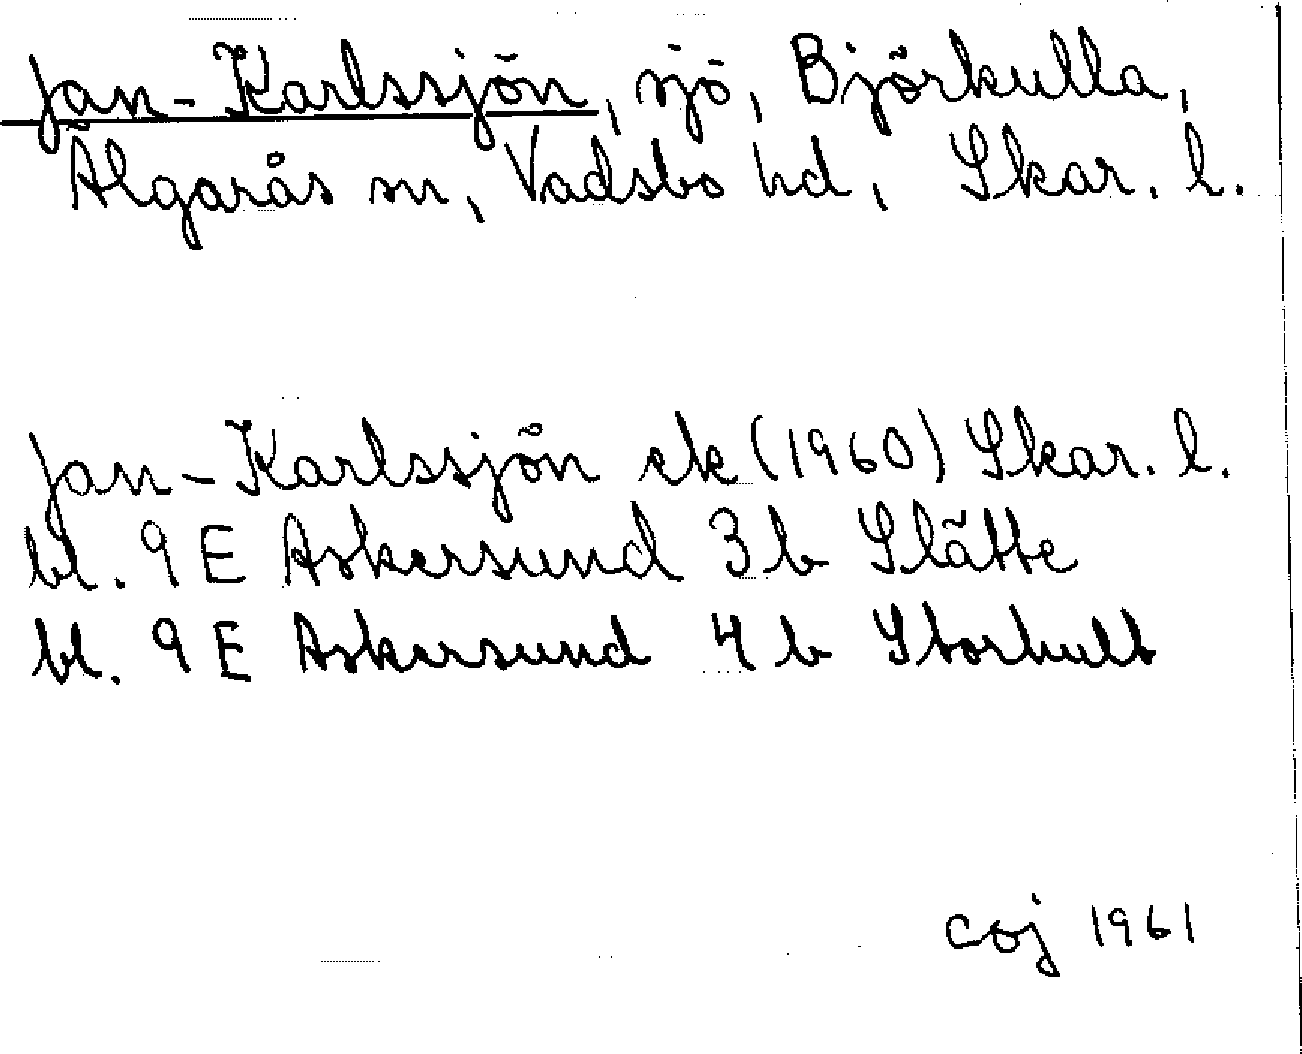 Jan-Karlssjön, sjö, Björkulla,
Älgarås sn, Vadsbo hd, Skar. l.
Jan-Karlssjön ek (1960) Skar. l.
bl. 9 E Askersund 3 b Slätte
bl. 9 E Askersund 4 b Storhult
coj 1961